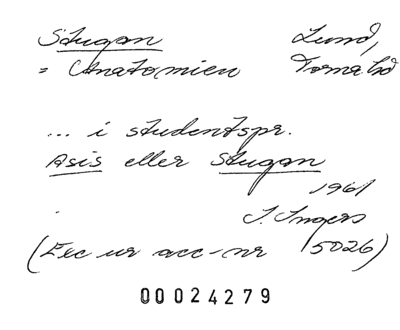 Stugan Lund,
= Anatomien Torna hd
... i studentspr.
Asis eller Stugan
1961
I. Ingers
(Exc ur acc-nr 5026)
00024279